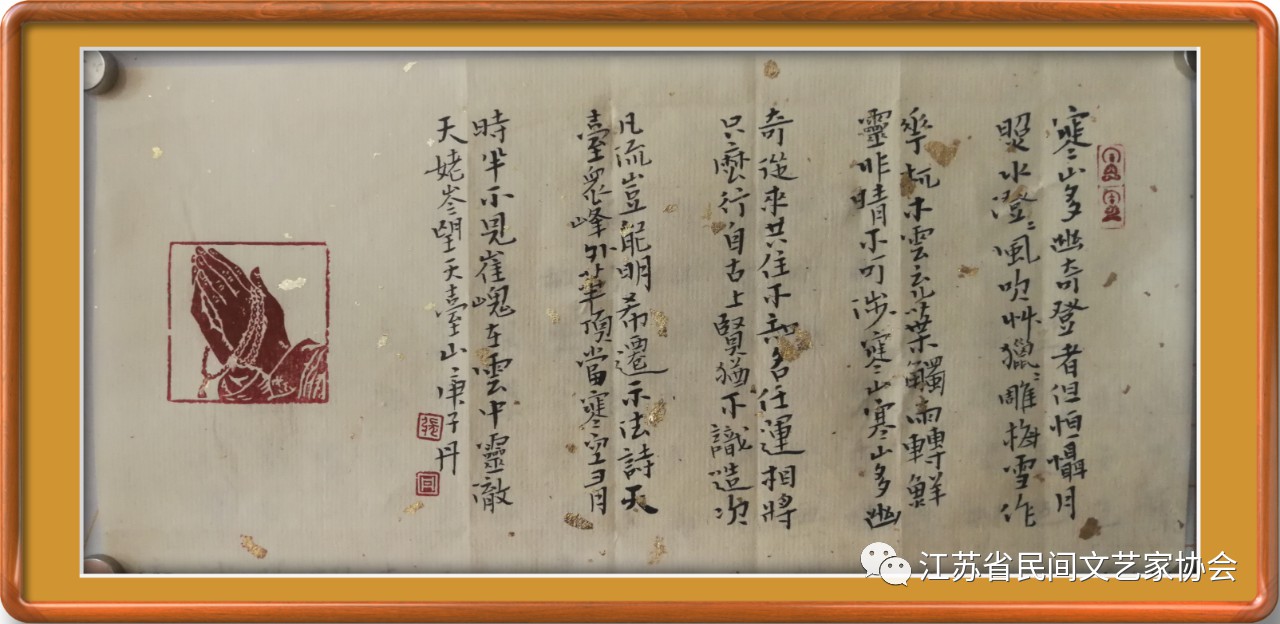 寒山多幽奇登者但怕懾月
照水澄〻風吹艸獵〻雕梅雪作
華杌木雲充葉觸雨轉鮮
靈非晴不可涉寒山寒山多幽
奇從來共住不知名任運相將
只麼行自古上賢猶不識造次
凡流豈能明希遷示法詩天
臺眾峰外華頂當寒空有月
時半不見崔嵬在雲中靈澈
天姥岑望天臺山庚子丹
張
江苏省民间文艺家协会